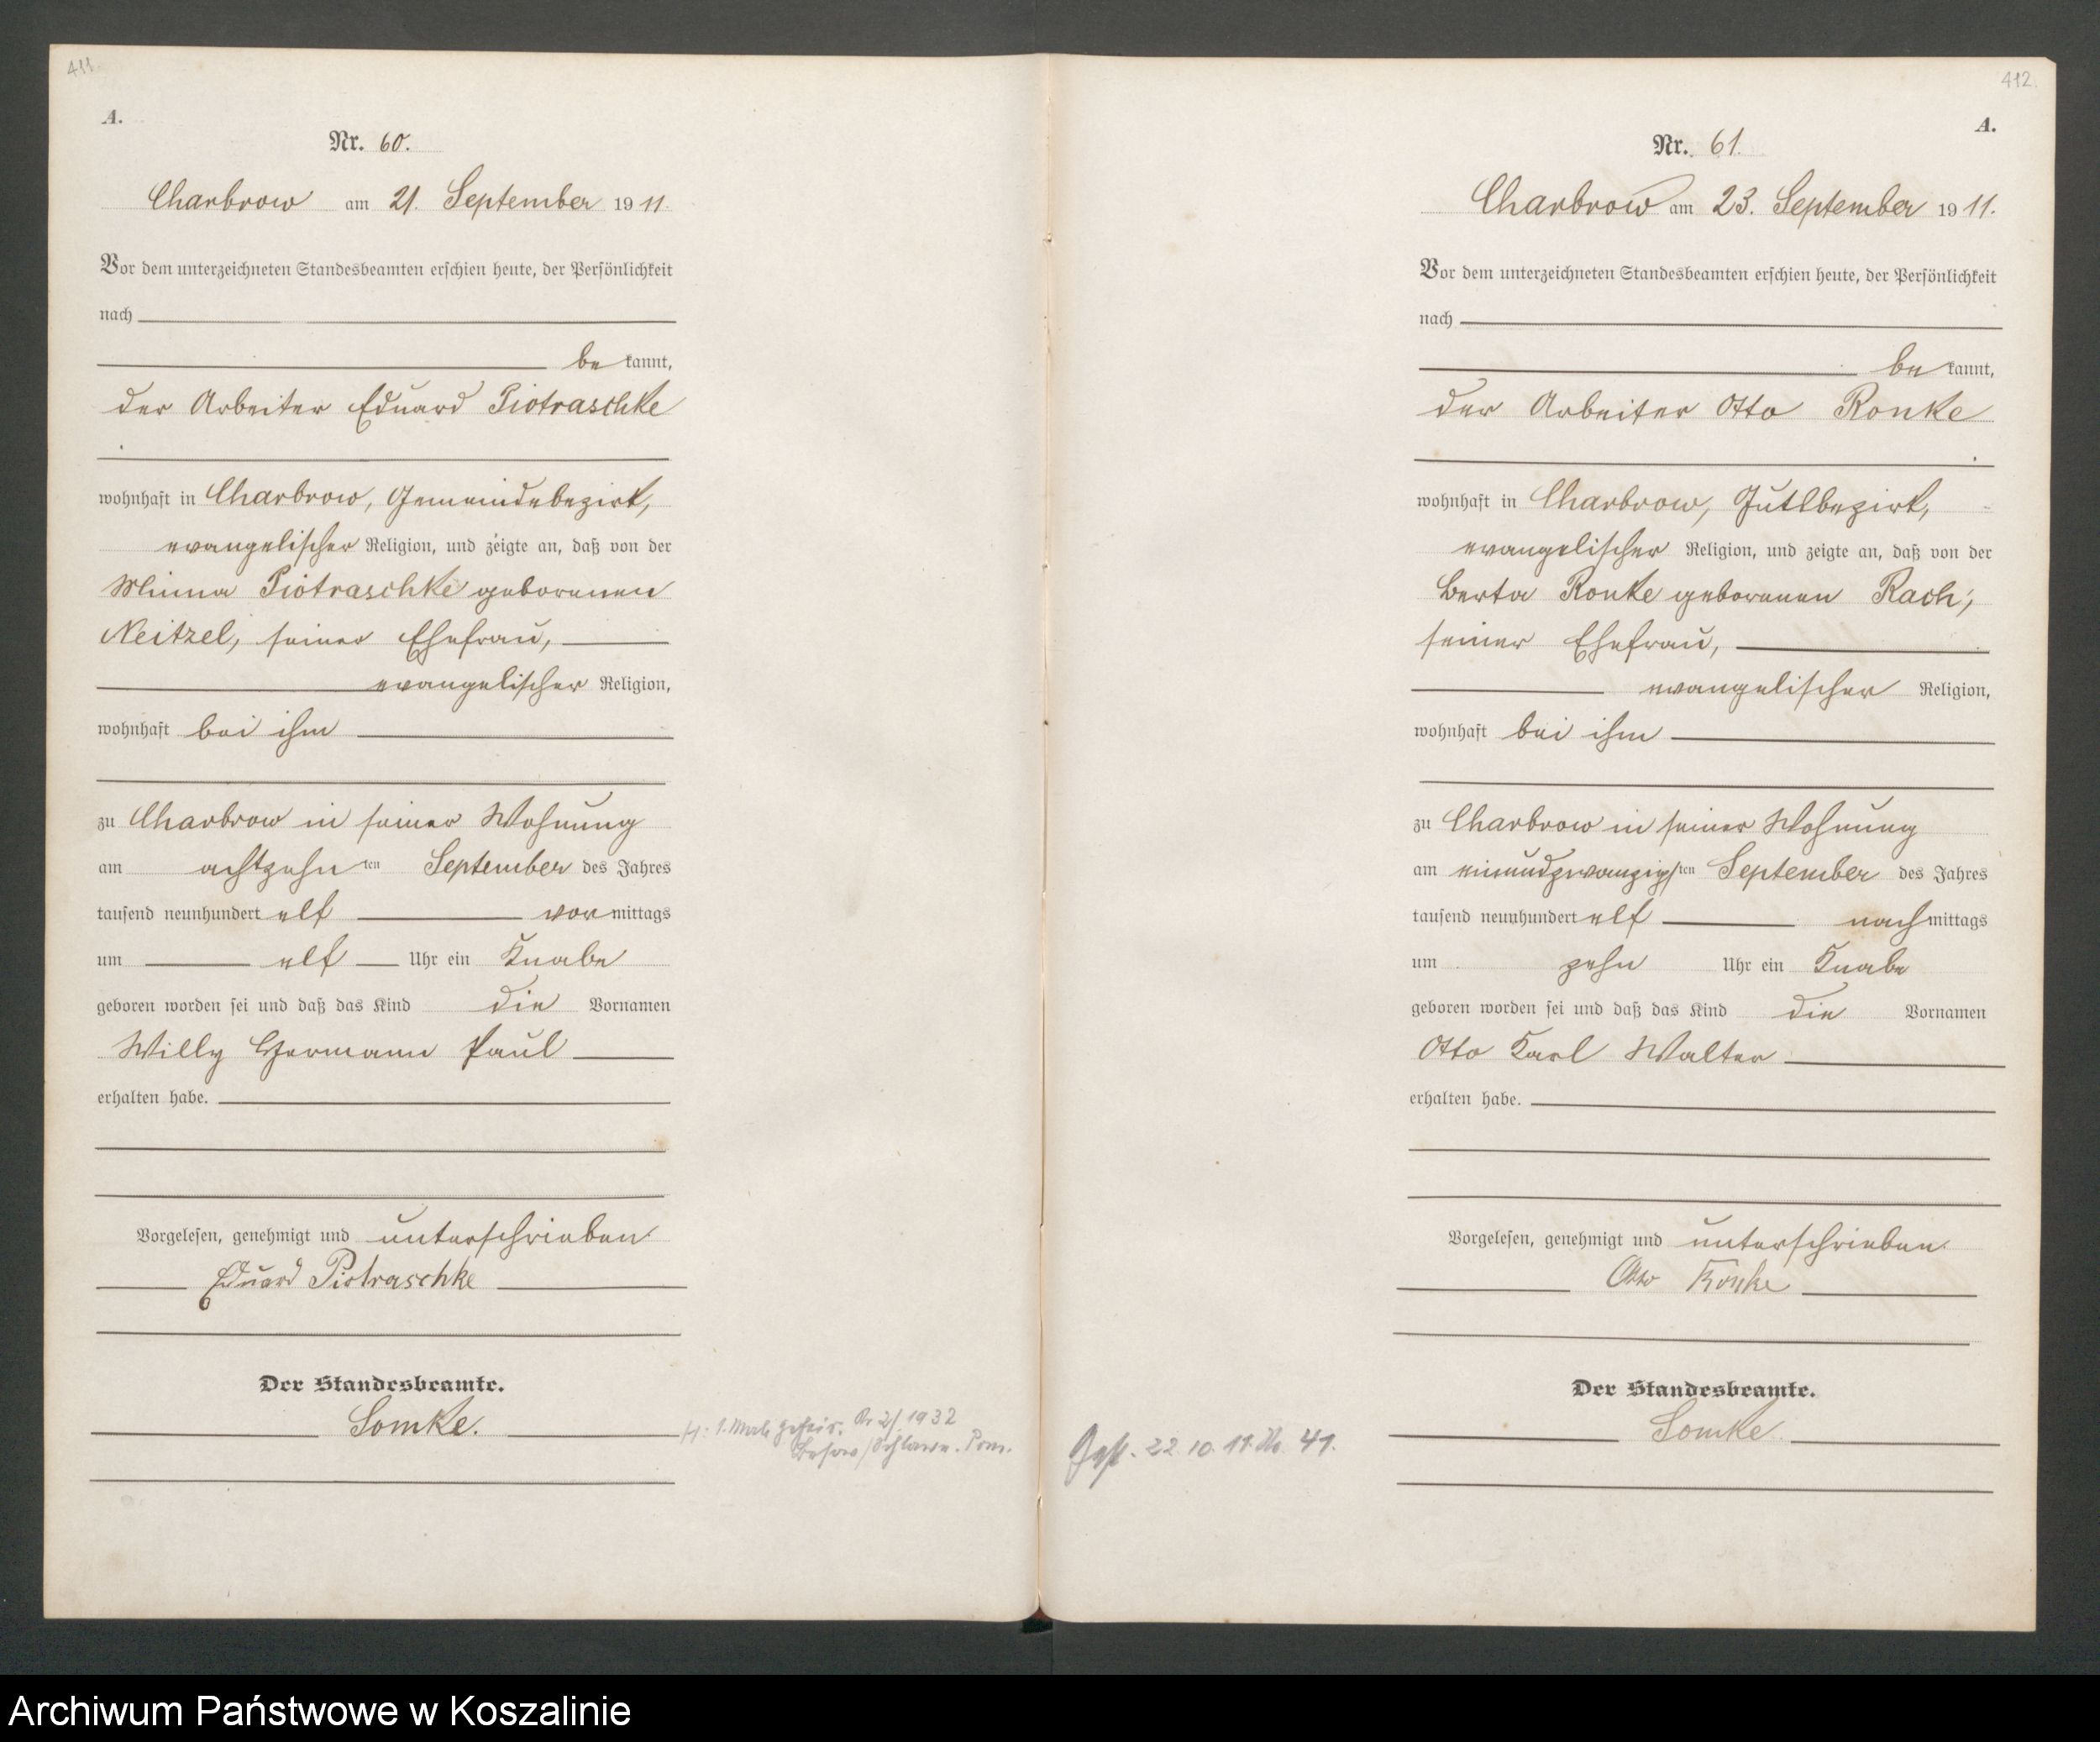 411.
A.
Nr. 60.
Charbrow am 21. September 1911.
Vor dem unterzeichneten Standesbeamten erschien heute, der Persönlichkeit
nach
be kannt,
der Arbeiter Eduard Piotraschke
wohnhaft in Charbrow, Gemeindebezirk,
evangelischer Religion, und zeigte an, daß von der
Minna Piotraschke geborenen
Neitzel, seiner Ehefrau,
evangelischer Religion,
wohnhaft bei ihm
zu Charbrow in seiner Wohnung
am achtzehn ten September des Jahres
tausend neunhundert elf vor mittags
um elf Uhr ein Knabe
geboren worden sei und daß das Kind die Vornamen
Willy Hermann Paul
erhalten habe.
Vorgelesen, genehmigt und unterschrieben
Eduard Piotraschke
Der Standesbeamte.
Somke.
H: 1. geheir. Nr. 2/1932
/Schlawe. Pom.
412.
A.
Nr. 61.
Charbrow am 23. September 1911.
Vor dem unterzeichneten Standesbeamten erschien heute, der Persönlichkeit
nach
be kannt,
der Arbeiter Otto Ronke
wohnhaft in Charbrow, Gutsbezirk,
evangelischer Religion, und zeigte an, daß von der
Berta Ronke geborenen Rach,
seiner Ehefrau,
evangelischer Religion,
wohnhaft bei ihm
zu Charbrow in seiner Wohnung
am einundzwanzigsten September des Jahres
tausend neunhundert elf nach mittags
um zehn Uhr ein Knabe
geboren worden sei und daß das Kind die Vornamen
Otto Karl Walter
erhalten habe.
Vorgelesen, genehmigt und unterschrieben
Otto Ronke
Der Standesbeamte.
Somke.
Gest. 22.10.11. No. 41.
Archiwum Państwowe w Koszalinie